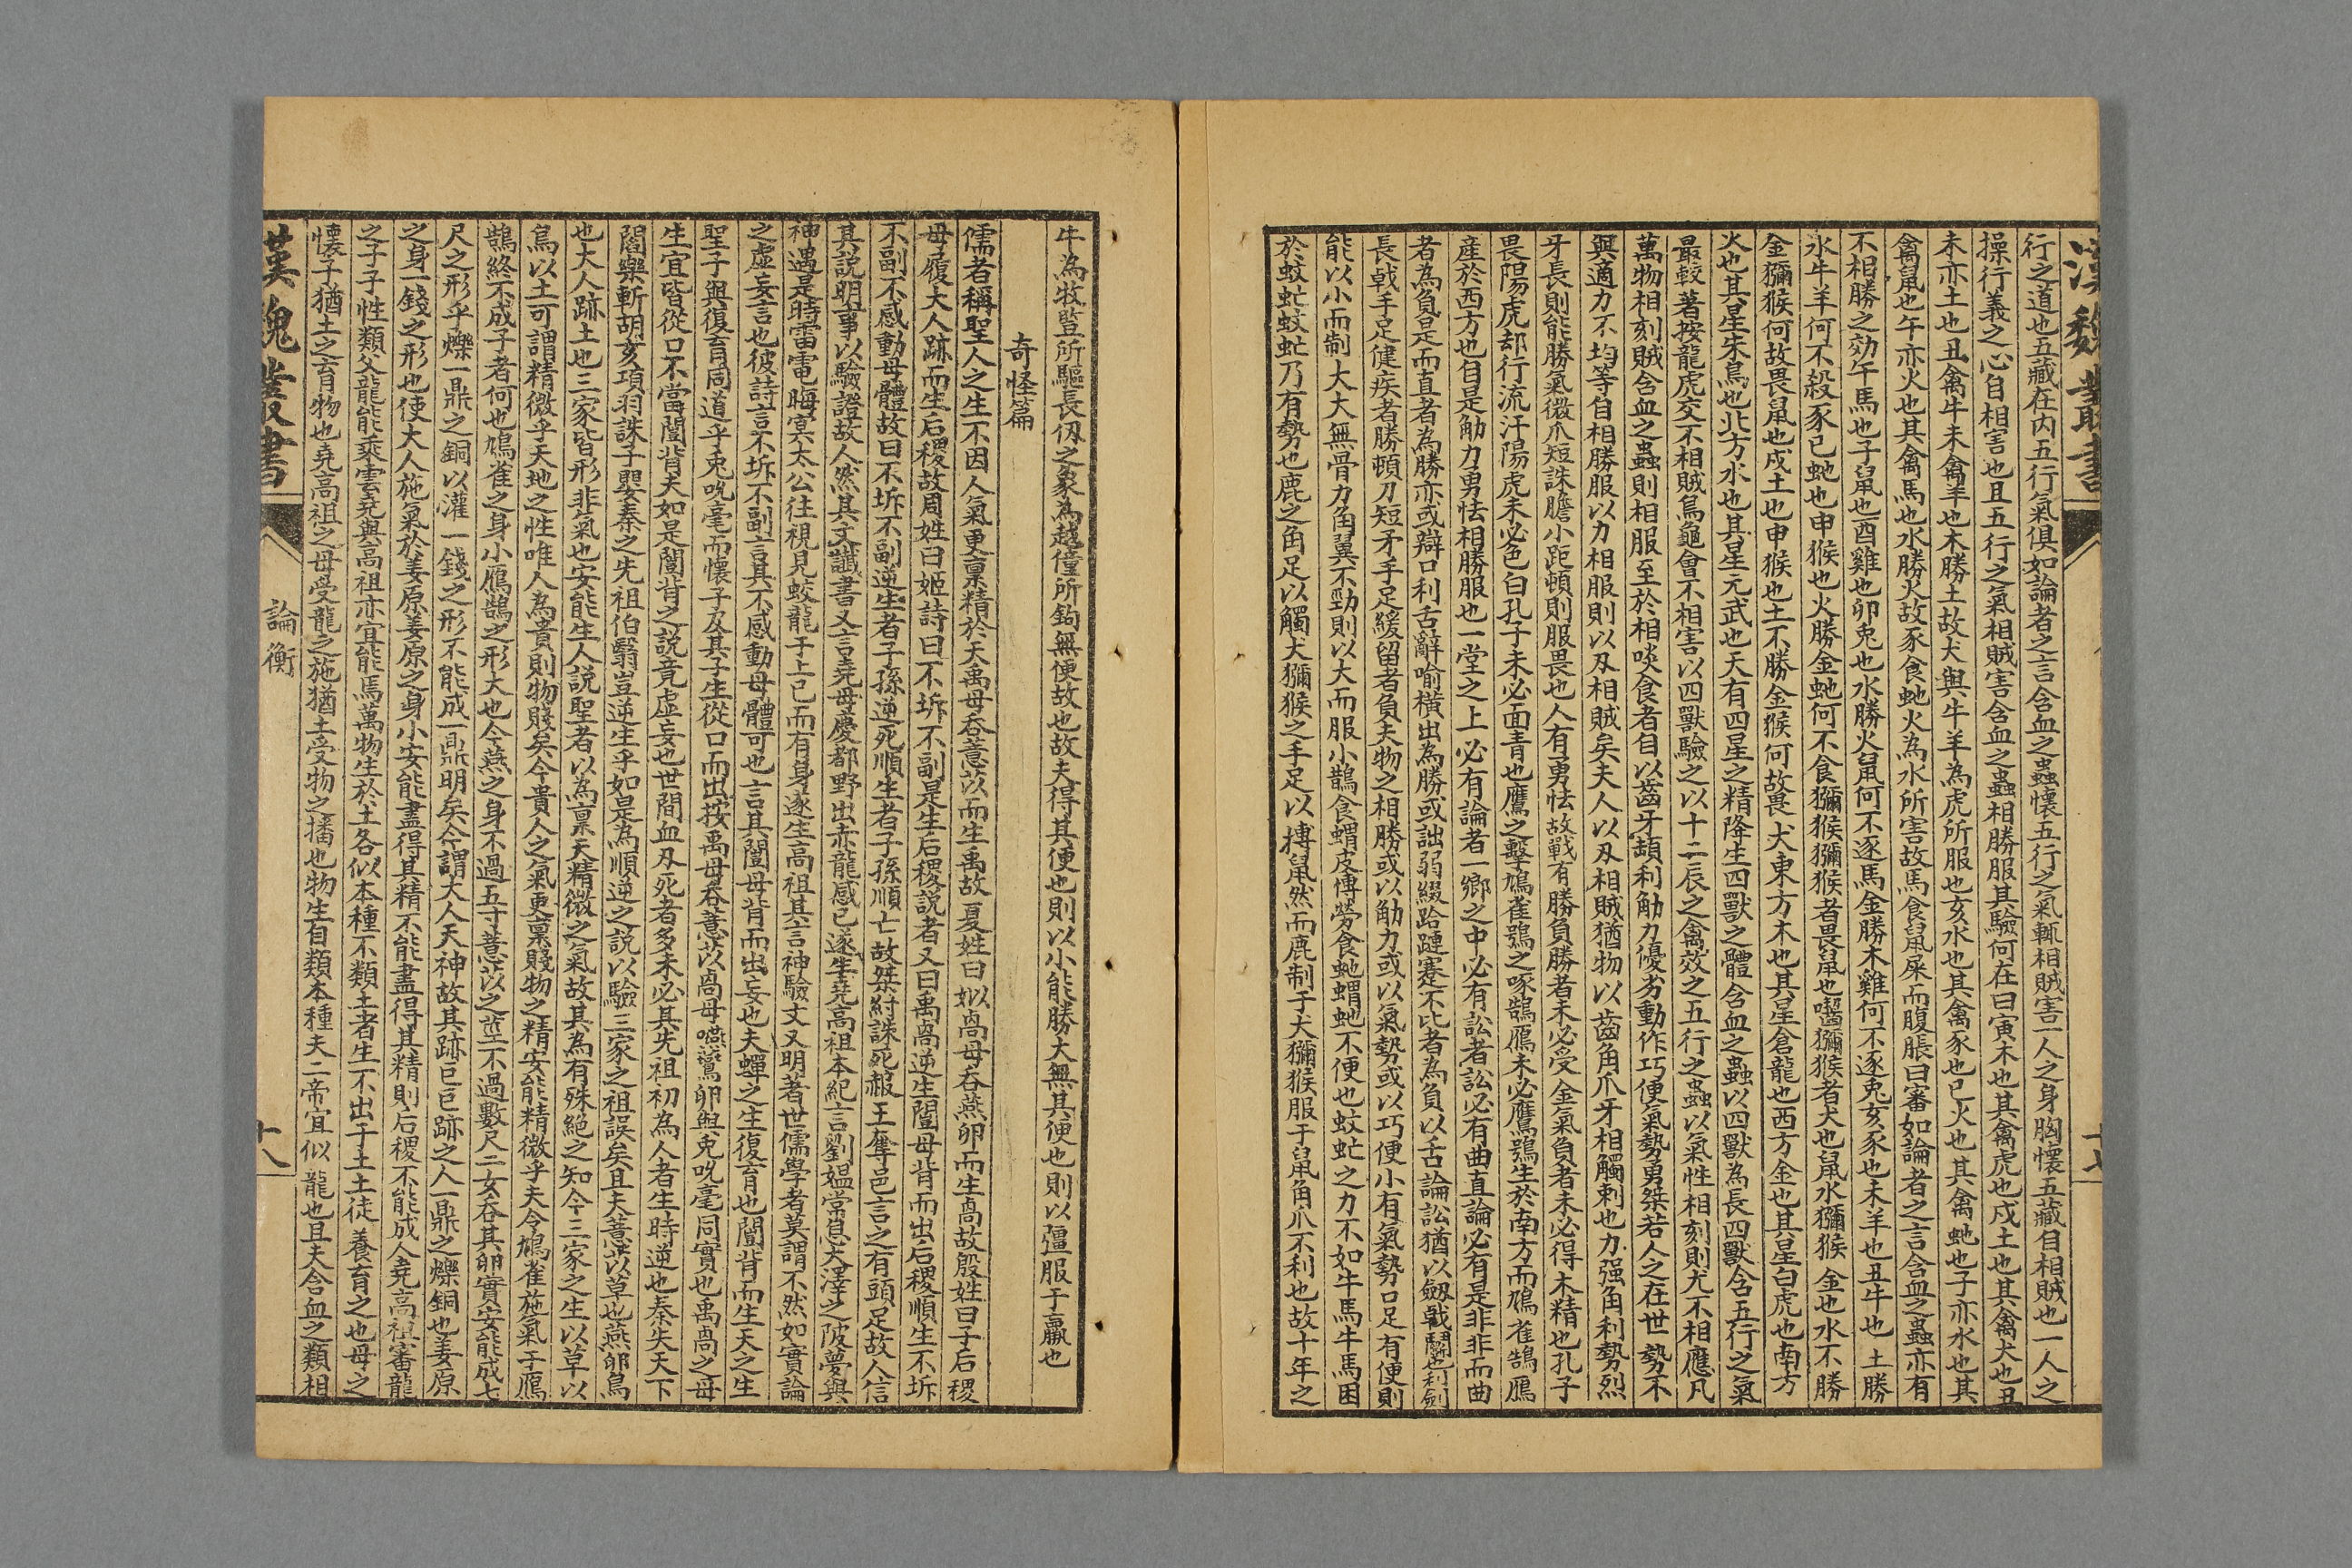 漢魏叢書
十七
行之道也五藏在內五行氣俱如論者之言含血之蟲懷五行之氣輒相賊害一人之身胸懷五藏自相賊也一人之
操行義之心自相害也且五行之氣相賊害含血之蟲相勝服其驗何在曰寅木也其禽虎也戌土也其禽犬也丑
未亦土也丑禽牛未禽羊也木勝土故犬與牛羊為虎所服也亥水也其禽豕也巳火也其禽虵也子亦水也其
禽鼠也午亦火也其禽馬也水勝火故豕食虵火為水所害故馬食鼠屎而腹脹曰審如論者之言含血之蟲亦有
不相勝之効午馬也子鼠也酉雞也卯兎也水勝火鼠何不逐馬金勝木雞何不逐兎亥豕也未羊也丑牛也土勝
水牛羊何不殺豕巳虵也申猴也火勝金虵何不食獼猴獼猴者畏鼠也囓獼猴者犬也鼠水獼猴金也水不勝
金獼猴何故畏鼠也戌土也申猴也土不勝金猴何故畏犬東方木也其星倉龍也西方金也其星白虎也南方
火也其星朱鳥也北方水也其星元武也天有四星之精降生四獸之體含血之蟲以四獸為長四獸含五行之氣
最較著按龍虎交不相賊鳥龜會不相害以四獸驗之以十二辰之禽效之五行之蟲以氣性相刻則尤不相應凡
萬物相刻賊含血之蟲則相服至於相啖食者自以齒牙頓利觔力優劣動作巧便氣勢勇桀若人之在世勢不
與適力不均等自相勝服以力相服則以刄相賊矣夫人以刄相賊猶物以齒角爪牙相觸刺也力强角利勢烈
牙長則能勝氣微爪短誅膽小距頓則服畏也人有勇怯故戰有勝負勝者未必受金氣負者未必得木精也孔子
畏陽虎却行流汗陽虎未必色白孔子未必面青也鷹之擊鳩雀鴞之啄鵠鴈未必鷹鴞生於南方而鳩雀鵠鴈
產於西方也自是觔力勇怯相勝服也一堂之上必有論者一鄉之中必有訟者訟必有曲直論必有是非非而曲
者為負是而直者為勝亦或辯口利舌辭喻橫出為勝或詘弱綴跲蹥蹇不比者為負以舌論訟猶以劔戟鬭也利劍
長戟手足健疾者勝頓刀短矛手足緩留者負夫物之相勝或以觔力或以氣勢或以巧便小有氣勢口足有便則
能以小而制大大無骨力角翼不勁則以大而服小鵲食蝟皮博勞食虵蝟虵不便也蚊虻之力不如牛馬牛馬困
於蚊虻蚊虻乃有勢也鹿之角足以觸犬獼猴之手足以摶鼠然而鹿制于犬獼猴服于鼠角爪不利也故十年之
牛為牧豎所驅長仞之象為越僮所鉤無便故也故夫得其便也則以小能勝大無其便也則以彊服于羸也
奇怪篇
儒者稱聖人之生不因人氣更禀精於天禹母吞薏苡而生禹故夏姓曰姒卨母吞燕卵而生卨故殷姓曰子后稷
母履大人跡而生后稷故周姓曰姬詩曰不坼不副是生后稷說者又曰禹卨逆生闓母背而出后稷順生不坼
不副不感動母體故曰不坼不副逆生者子孫逆死順生者子孫順亡故桀紂誅死赧王奪邑言之有頭足故人信
其說明事以驗證故人然其文讖書又言堯母慶都野出赤龍感己遂生堯高祖本紀言劉媼嘗息大澤之陂夢與
神遇是時雷電晦冥太公往視見蛟龍于上已而有身遂生高祖其言神驗文又明著世儒學者莫謂不然如實論
之虛妄言也彼詩言不坼不副言其不感動母體可也言其闓母背而出妄也夫蟬之生復育也闓背而生天之生
聖子與復育同道乎兎吮毫而懷子及其子生從口而出按禹母吞薏苡卨母嚥鷰卵與兎吮毫同實也禹卨之母
生宜皆從口不當闓背夫如是闓背之說竟虛妄也世間血刄死者多未必其先祖初為人者生時逆也秦失天下
閻樂斬胡亥項羽誅子嬰秦之先祖伯翳豈逆生乎如是為順逆之說以驗三家之祖誤矣且夫薏苡草也燕卵鳥
也大人跡土也三家皆形非氣也安能生人說聖者以為禀天精微之氣故其為有殊絕之知今三家之生以草以
鳥以土可謂精微乎天地之性唯人為貴則物賤矣今貴人之氣更禀賤物之精安能精微乎夫令鳩雀施氣于鴈
鵠終不成子者何也鳩雀之身小鴈鵠之形大也今燕之身不過五寸薏苡之莖不過數尺二女吞其卵實安能成七
尺之形乎爍一鼎之銅以灌一錢之形不能成一鼎明矣今謂大人天神故其跡巨巨跡之人一鼎之爍銅也姜原
之身一錢之形也使大人施氣於姜原姜原之身小安能盡得其精不能盡得其精則后稷不能成人堯高祖審龍
之子子性類父龍能乘雲堯與高祖亦宜能焉萬物生於土各似本種不類土者生不出于土土徒養育之也母之
懷子猶土之育物也堯高祖之母受龍之施猶土受物之播也物生自類本種夫二帝宜似龍也且夫含血之類相
漢魏叢書
論衡
十八